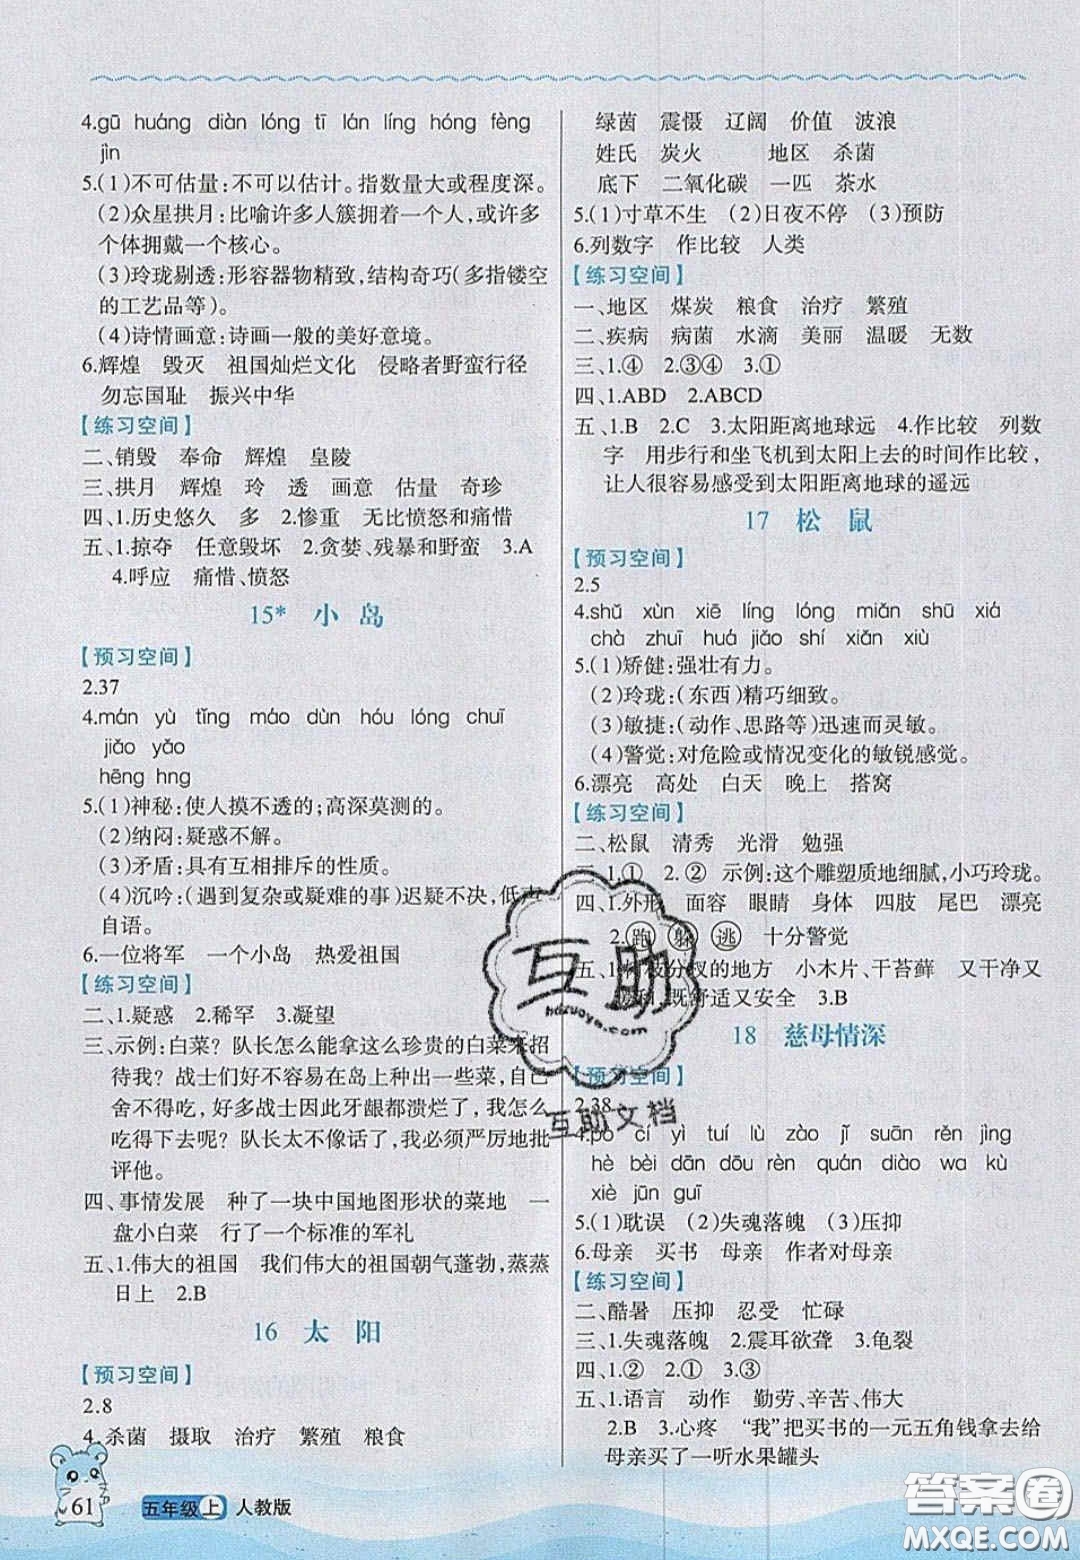 4.gū huáng diàn lóng tī lán líng hóng fèng
jìn
5.(1)不可估量:不可以估计。指数量大或程度深。
(2)众星拱月:比喻许多人簇拥着一个人,或许多
个体拥戴一个核心。
(3)玲珑剔透:形容器物精致,结构奇巧(多指镂空
的工艺品等)。
(4)诗情画意:诗画一般的美好意境。
6.辉煌 毁灭 祖国灿烂文化 侵略者野蛮行径
勿忘国耻 振兴中华
【练习空间】
二、销毁 奉命 辉煌 皇陵
三、拱月 辉煌 玲 透 画意 估量 奇珍
四、1.历史悠久 多 2.惨重 无比愤怒和痛惜
五、1.掠夺 任意毁坏 2.贪婪、残暴和野蛮 3.A
4.呼应 痛惜、愤怒
15* 小 岛
【预习空间】
2.37
4.mán yù tǐng máo dùn hóu lóng chuī
jiǎo yǎo
hēng hng
5.(1)神秘:使人摸不透的;高深莫测的。
(2)纳闷:疑惑不解。
(3)矛盾:具有互相排斥的性质。
(4)沉吟:(遇到复杂或疑难的事)迟疑不决,低声
自语。
6.一位将军 一个小岛 热爱祖国
【练习空间】
二、1.疑惑 2.稀罕 3.凝望
三、示例:白菜?队长怎么能拿这么珍贵的白菜来招
待我?战士们好不容易在岛上种出一些菜,自己
舍不得吃,好多战士因此牙龈都溃烂了,我怎么
吃得下去呢?队长太不像话了,我必须严厉地批
评他。
四、事情发展 种了一块中国地图形状的菜地 一
盘小白菜 行了一个标准的军礼
五、1.伟大的祖国 我们伟大的祖国朝气蓬勃,蒸蒸
日上 2.B
16 太 阳
【预习空间】
2.8
4.杀菌 摄取 治疗 繁殖 粮食
绿茵 震慑 辽阔 价值 波浪
姓氏 炭火 地区 杀菌
底下 二氧化碳 一匹 茶水
5.(1)寸草不生 (2)日夜不停 (3)预防
6.列数字 作比较 人类
【练习空间】
一、地区 煤炭 粮食 治疗 繁殖
二、疾病 病菌 水滴 美丽 温暖 无数
三、1.④ 2.③④ 3.①
四、1.ABD 2.ABCD
五、1.B 2.C 3.太阳距离地球远 4.作比较 列数
字 用步行和坐飞机到太阳上去的时间作比较,
让人很容易感受到太阳距离地球的遥远
17 松 鼠
【预习空间】
2.5
4.shǔ xùn xiē líng lóng miǎn shū xiá
chà zhuī huá jiǎo shí xiǎn xiù
5.(1)矫健:强壮有力。
(2)玲珑:(东西)精巧细致。
(3)敏捷:(动作、思路等)迅速而灵敏。
(4)警觉:对危险或情况变化的敏锐感觉。
6.漂亮 高处 白天 晚上 搭窝
【练习空间】
二、松鼠 清秀 光滑 勉强
三、1.① 2.② 示例:这个雕塑质地细腻,小巧玲珑。
四、1.外形 面容 眼睛 身体 四肢 尾巴 漂亮
2.跑 躲 逃 十分警觉
五、1.树枝分杈的地方 小木片、干苔藓 又干净又
暖和,既舒适又安全 3.B
18 慈母情深
【预习空间】
2.38
4.pò cí yì tuí lù zào jǐ suān rěn jìng
hè bèi dān dōu rèn quán diào wa kù
xiè jūn guī
5.(1)耽误 (2)失魂落魄 (3)压抑
6.母亲 买书 母亲 作者对母亲
【练习空间】
二、酷暑 压抑 忍受 忙碌
三、1.失魂落魄 2.震耳欲聋 3.龟裂
四、1.② 2.① 3.③
五、1.语言 动作 勤劳、辛苦、伟大
2.B 3.心疼 “我”把买书的一元五角钱拿去给
母亲买了一听水果罐头
互助
hdzuoye.com
互助文档
61
五年级 上 人教版
答案圈
MXQE.COM